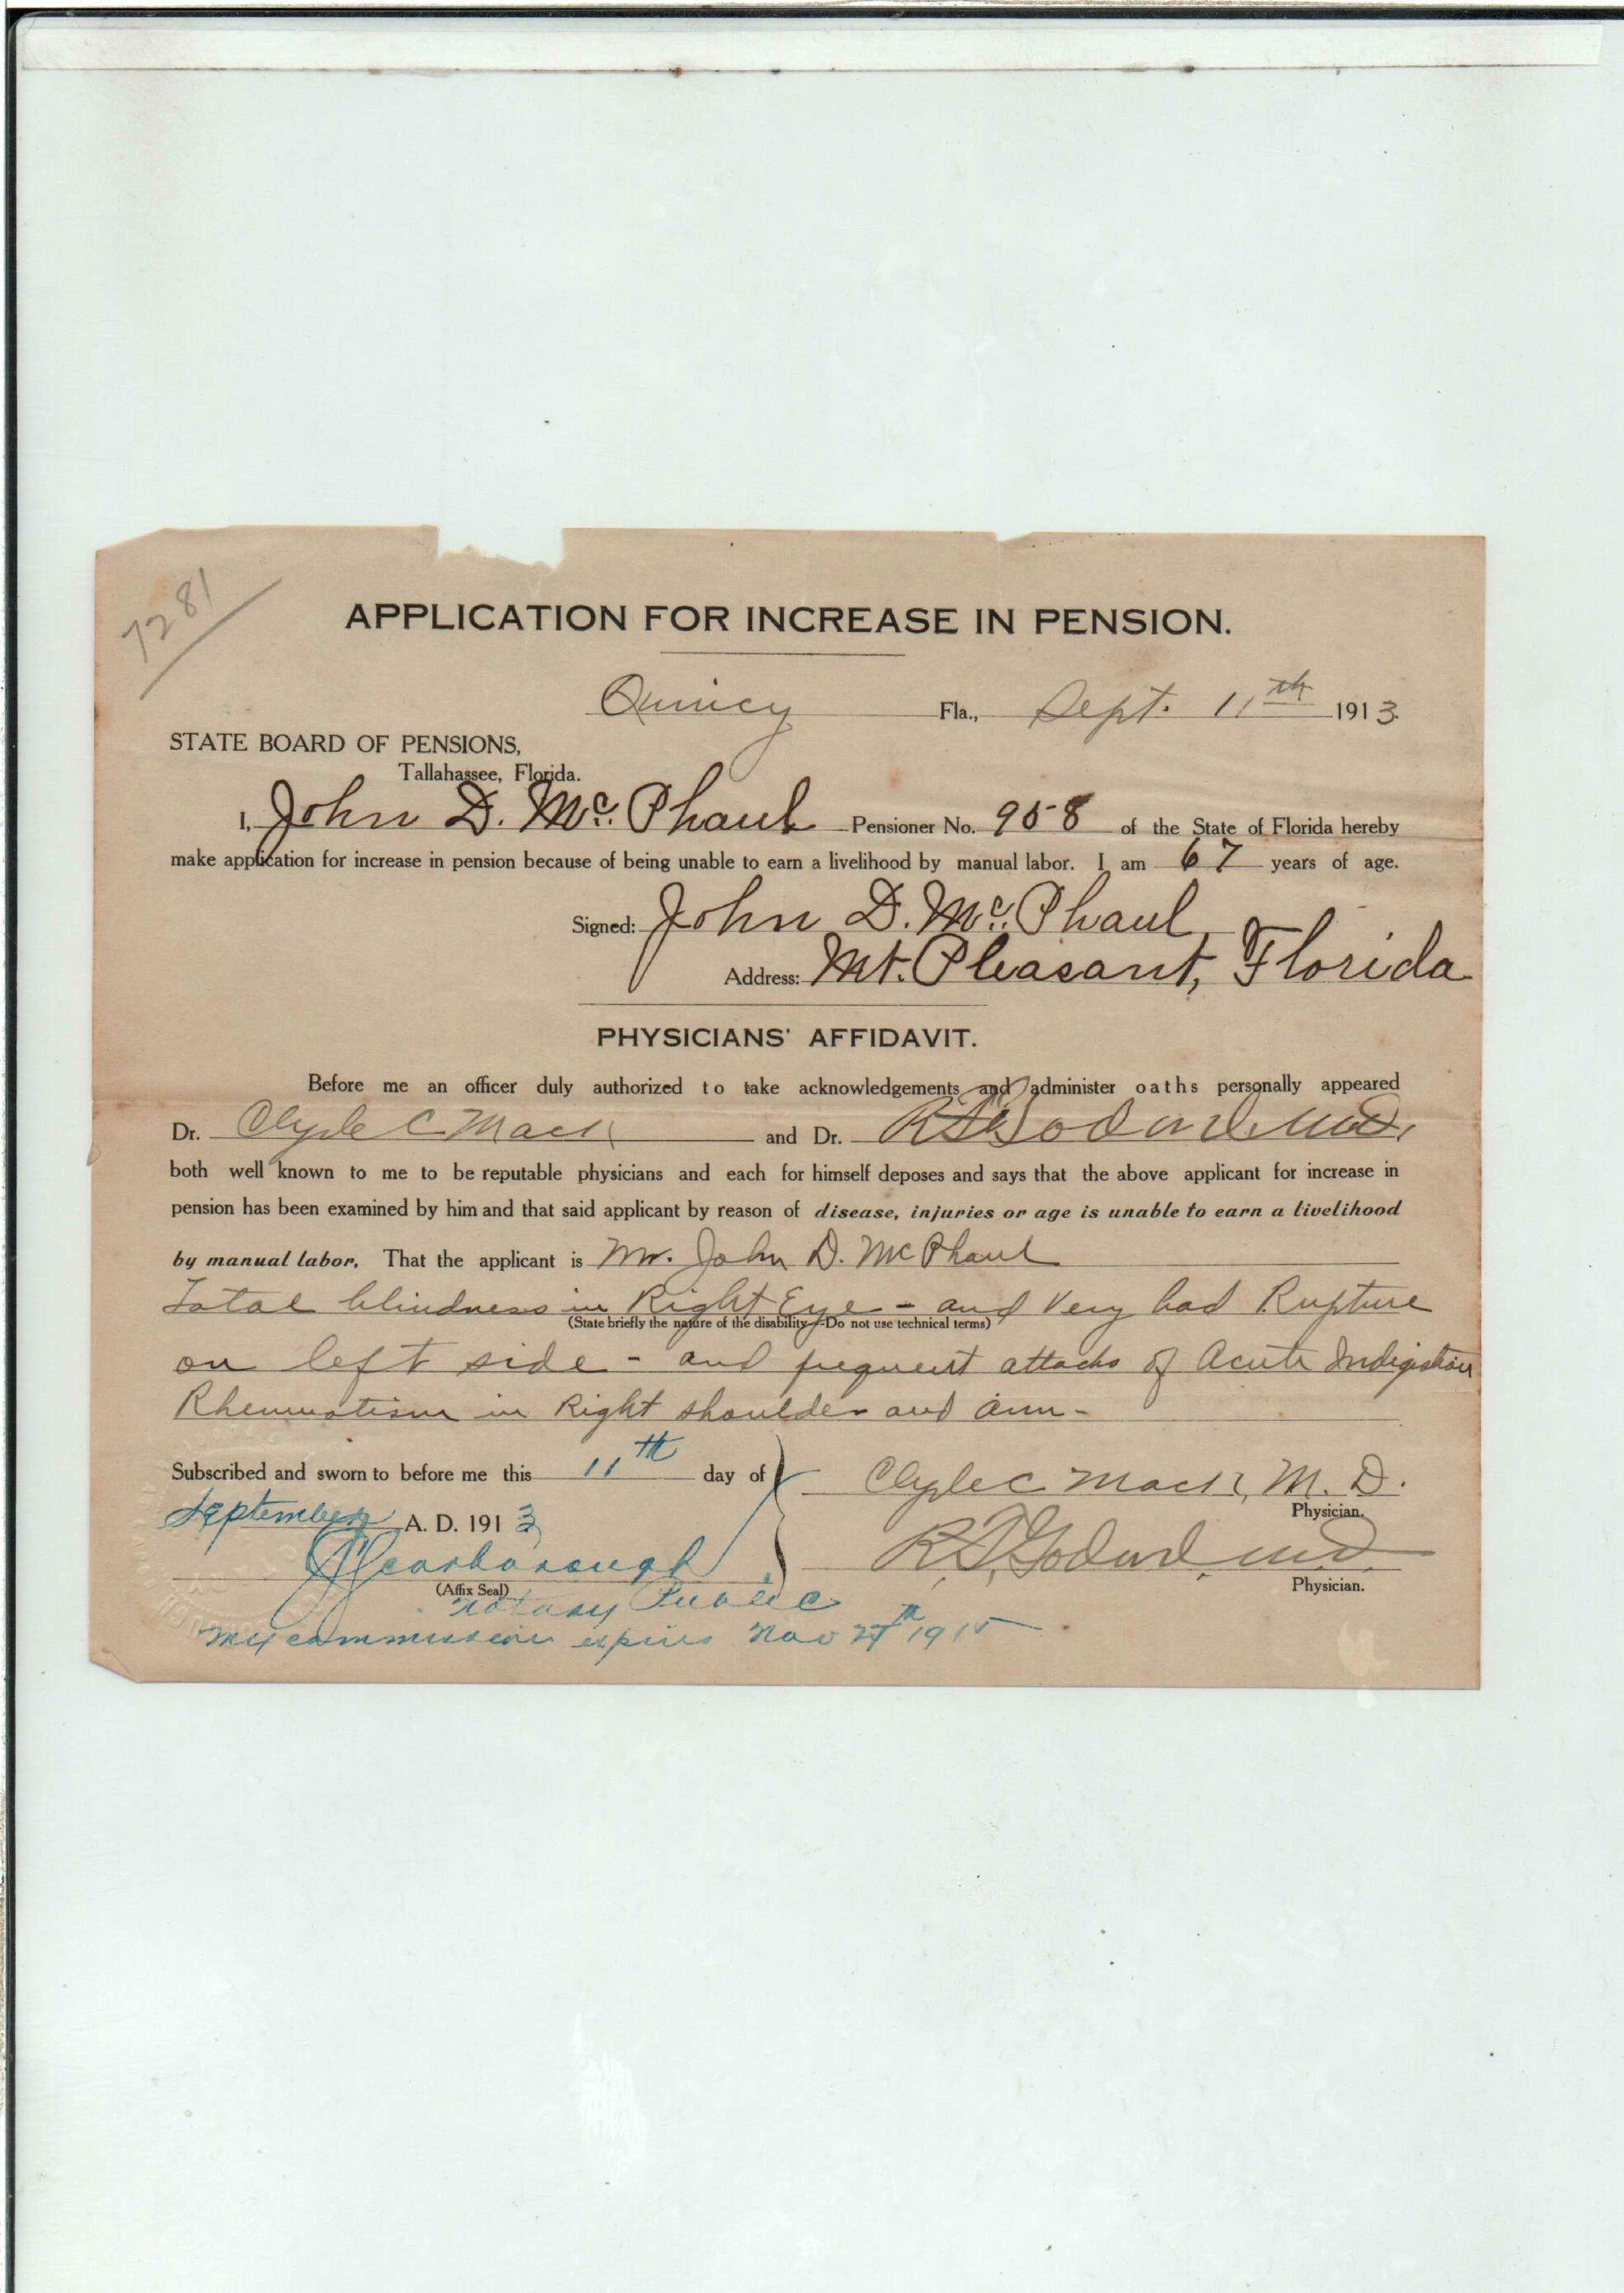 7281
APPLICATION FOR INCREASE IN PENSION.
Quincy Fla., Sept. 11th 1913.
STATE BOARD OF PENSIONS,
Tallahassee, Florida.
I, John D. Mc. Phaul Pensioner No. 958 of the State of Florida hereby
make application for increase in pension because of being unable to earn a livelihood by manual labor. I am 67 years of age.
Signed: John D. Mc. Phaul
Address: Mt. Pleasant, Florida
PHYSICIANS' AFFIDAVIT.
Before me an officer duly authorized to take acknowledgements and administer oaths personally appeared
Dr. Clyde C Mack and Dr. M.D.
both well known to me to be reputable physicians and each for himself deposes and says that the above applicant for increase in
pension has been examined by him and that said applicant by reason of disease, injuries or age is unable to earn a livelihood
by manual labor. That the applicant is Mr. John D. McPhaul
Total blindness in Right Eye - and Very bad Rupture
(State briefly the nature of the disability—Do not use technical terms)
on left side - and frequent attacks of Acute Indigestion
Rheumatism in Right shoulder and Arm -
Subscribed and sworn to before me this 11th day of
Clyde C Mack, M. D.
Physician.
September A. D. 1913
Scarborough
M.D.
(Affix Seal)
Physician.
Notary Public
My commission expires Nov 27th 1915